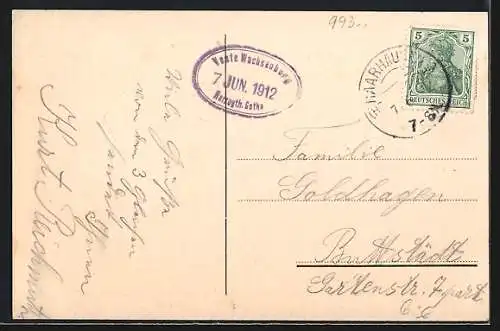 993.-
5 5
DEUTSCHES REICH
7-8N
Veste Wachsenburg
7 JUN. 1912
Herzogth. Gotha
Viele Grüße
von den 3 Gleichen
sendet
Ihnen
Kurt Reichmuth
Familie
Goldhagen
Buttstädt
Gartenstr. 7 part